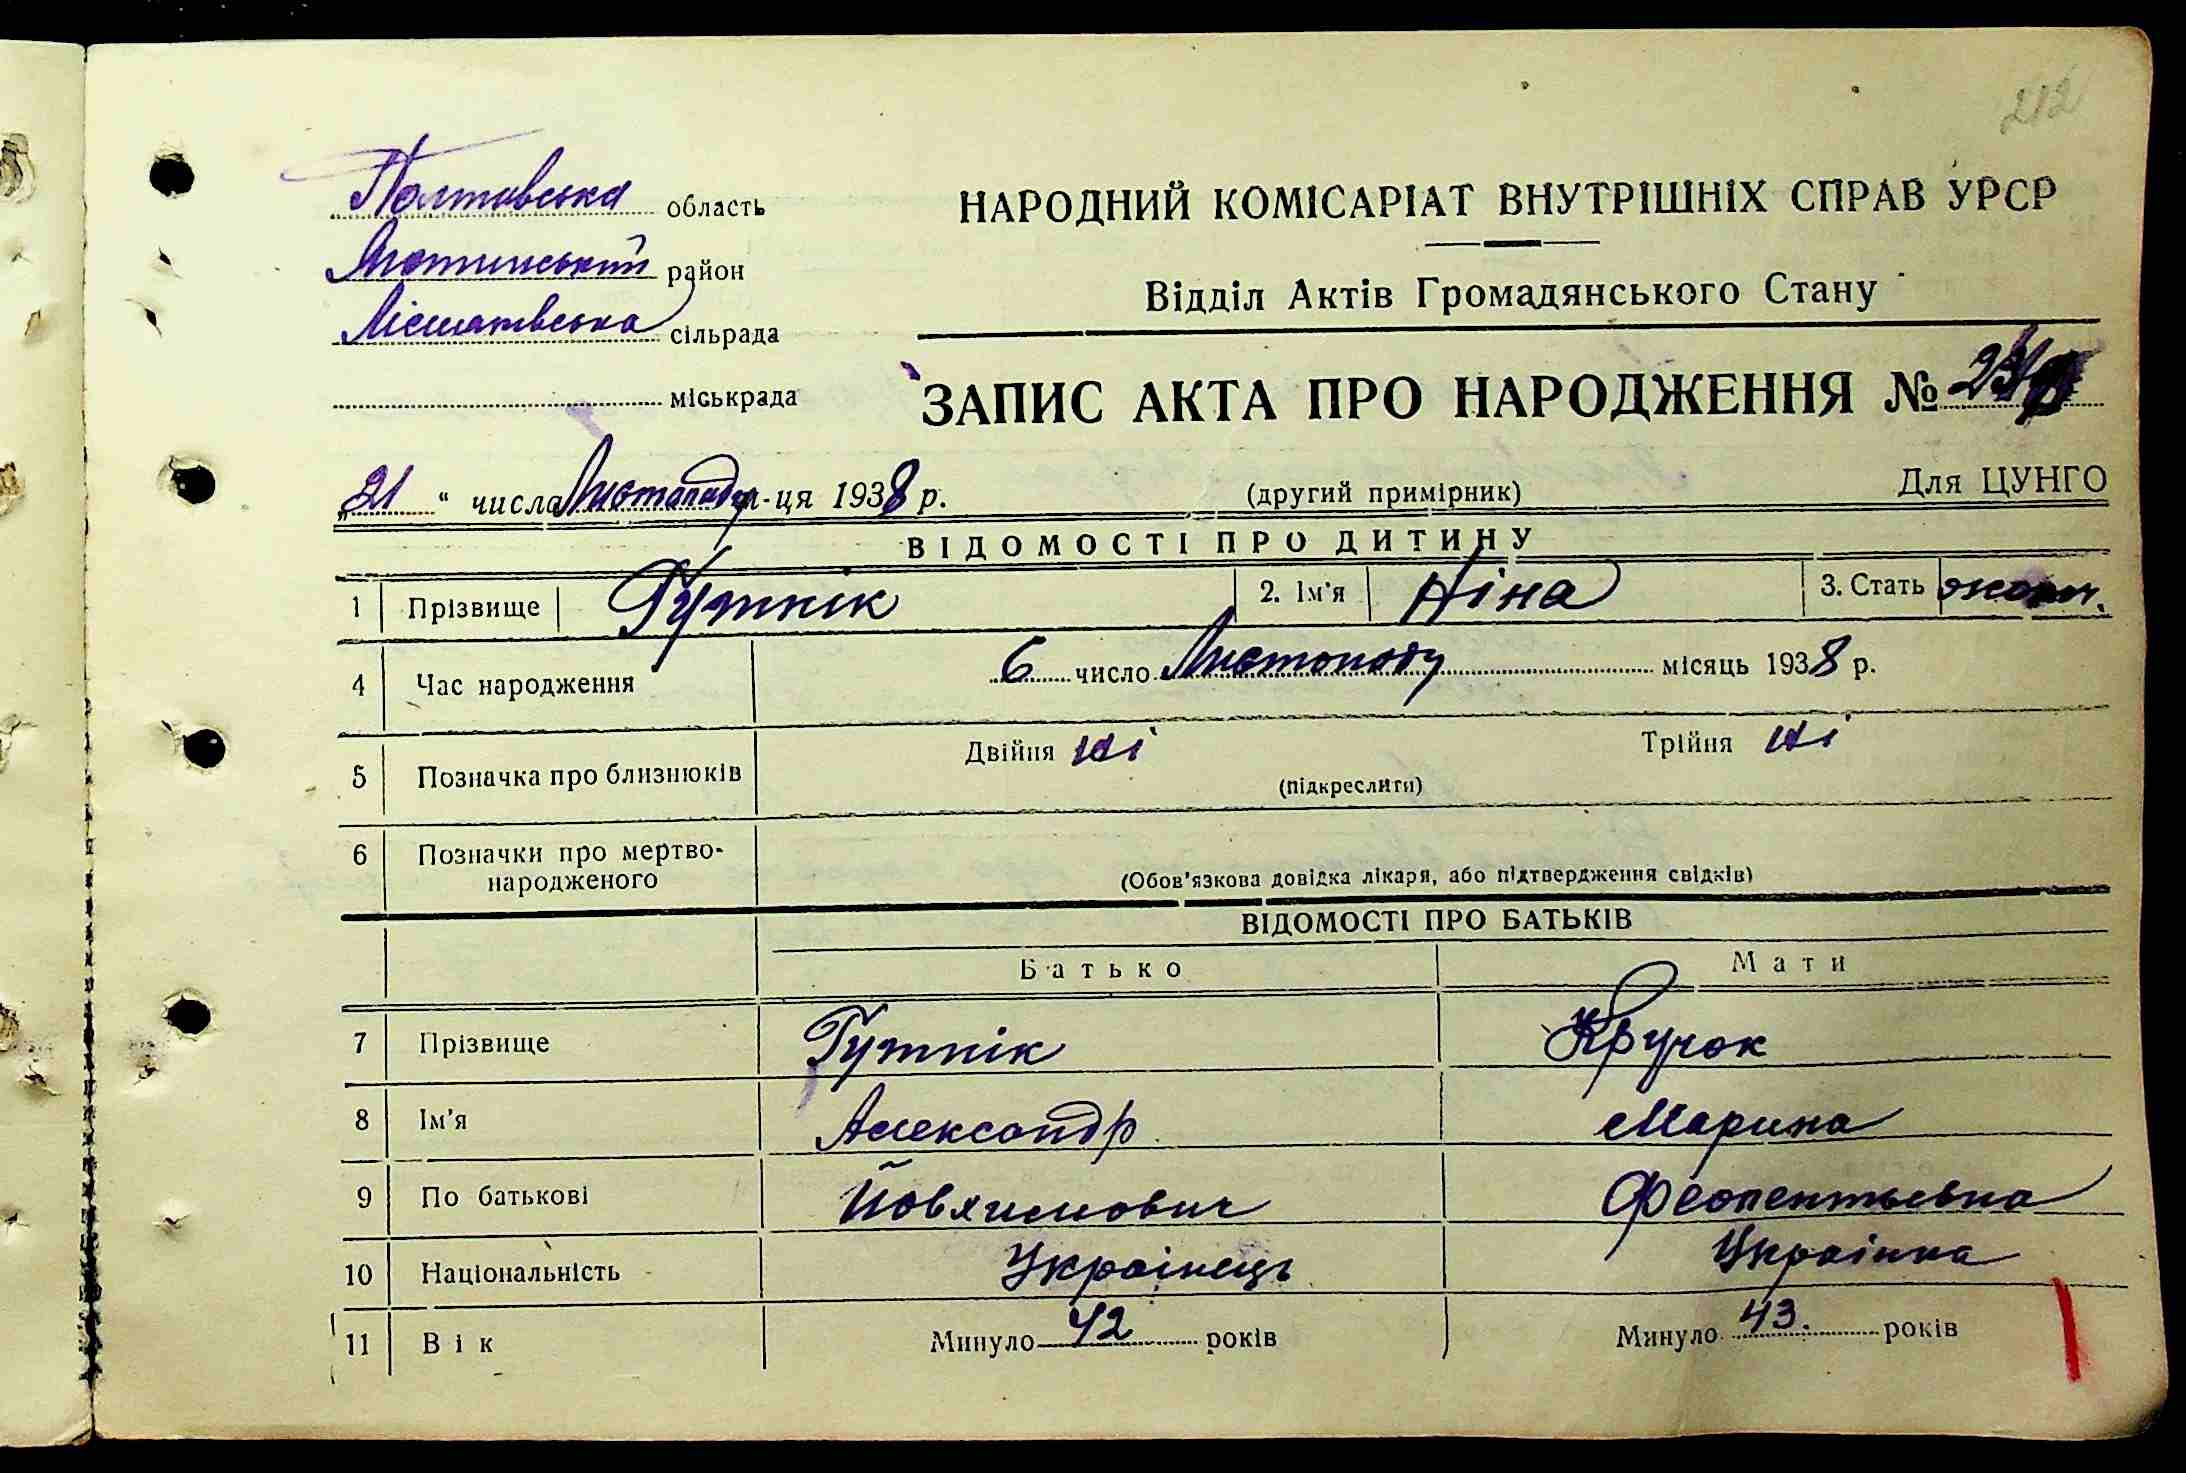 212
Полтавська область
НАРОДНИЙ КОМІСАРІАТ ВНУТРІШНІХ СПРАВ УРСР
район
Відділ Актів Громадянського Стану
сільрада
міськрада
ЗАПИС АКТА ПРО НАРОДЖЕННЯ №
„21“ числа Листопаду м-ця 1938 р.
(другий примірник)
Для ЦУНГО
ВІДОМОСТІ ПРО ДИТИНУ
1 Прізвище Гутнік 2. Ім'я Ніна 3. Стать
4 Час народження 6 число Листопаду місяць 1938 р.
5 Позначка про близнюків Двійня ні Трійня ні
(підкреслити)
6 Позначки про мертво-
народженого
(Обов'язкова довідка лікаря, або підтвердження свідків)
ВІДОМОСТІ ПРО БАТЬКІВ
Батько Мати
7 Прізвище Гутнік Кручок
8 Ім'я Александр Марина
9 По батькові Йовхимович Феопентьевна
10 Національність Українець Українка
11 Вік Минуло 42 років Минуло 43. років